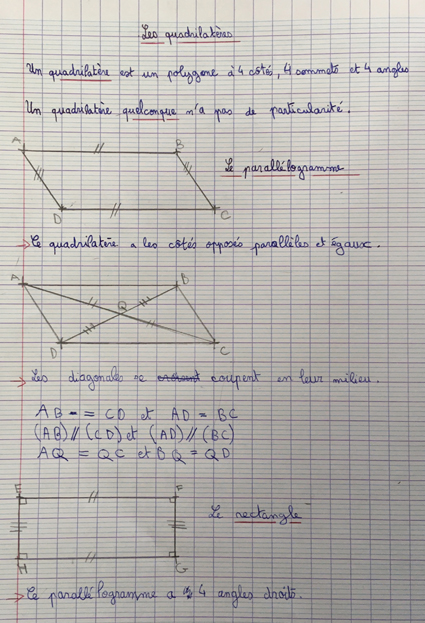 Les quadrilatères
Un quadrilatère est un polygone à 4 côtés, 4 sommets et 4 angles
Un quadrilatère quelconque n'a pas de particularité.
A B
Le parallélogramme
D C
→ Ce quadrilatère a les côtés opposés parallèles et égaux.
A B
Q
D C
→ Les diagonales se coupent en leur milieu.
AB = CD et AD = BC
(AB) // (CD) et (AD) // (BC)
AQ = QC et BQ = QD
E F
Le rectangle
H G
→ Ce parallélogramme a 4 angles droits.